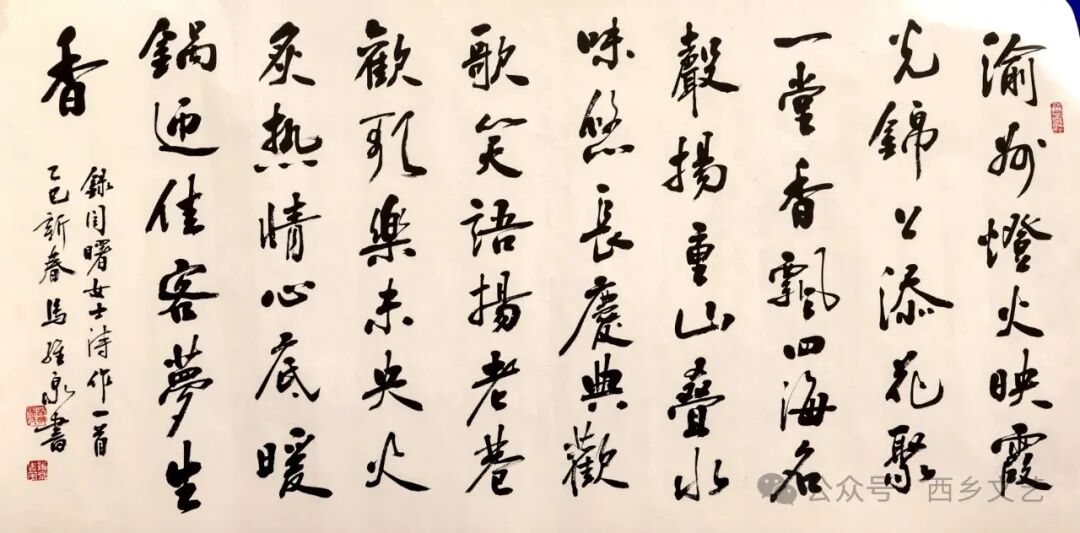 渝州燈火映霞
光錦上添花聚
一堂香飄四海名
聲揚重山疊水
味悠長慶典歡
歌笑語揚老巷
歡歌樂未央火
炙热情心底暖
鍋迎佳客夢生
香
錄闫曙女士詩作一首
乙巳新春馬維泉書
公众号 · 西乡文艺